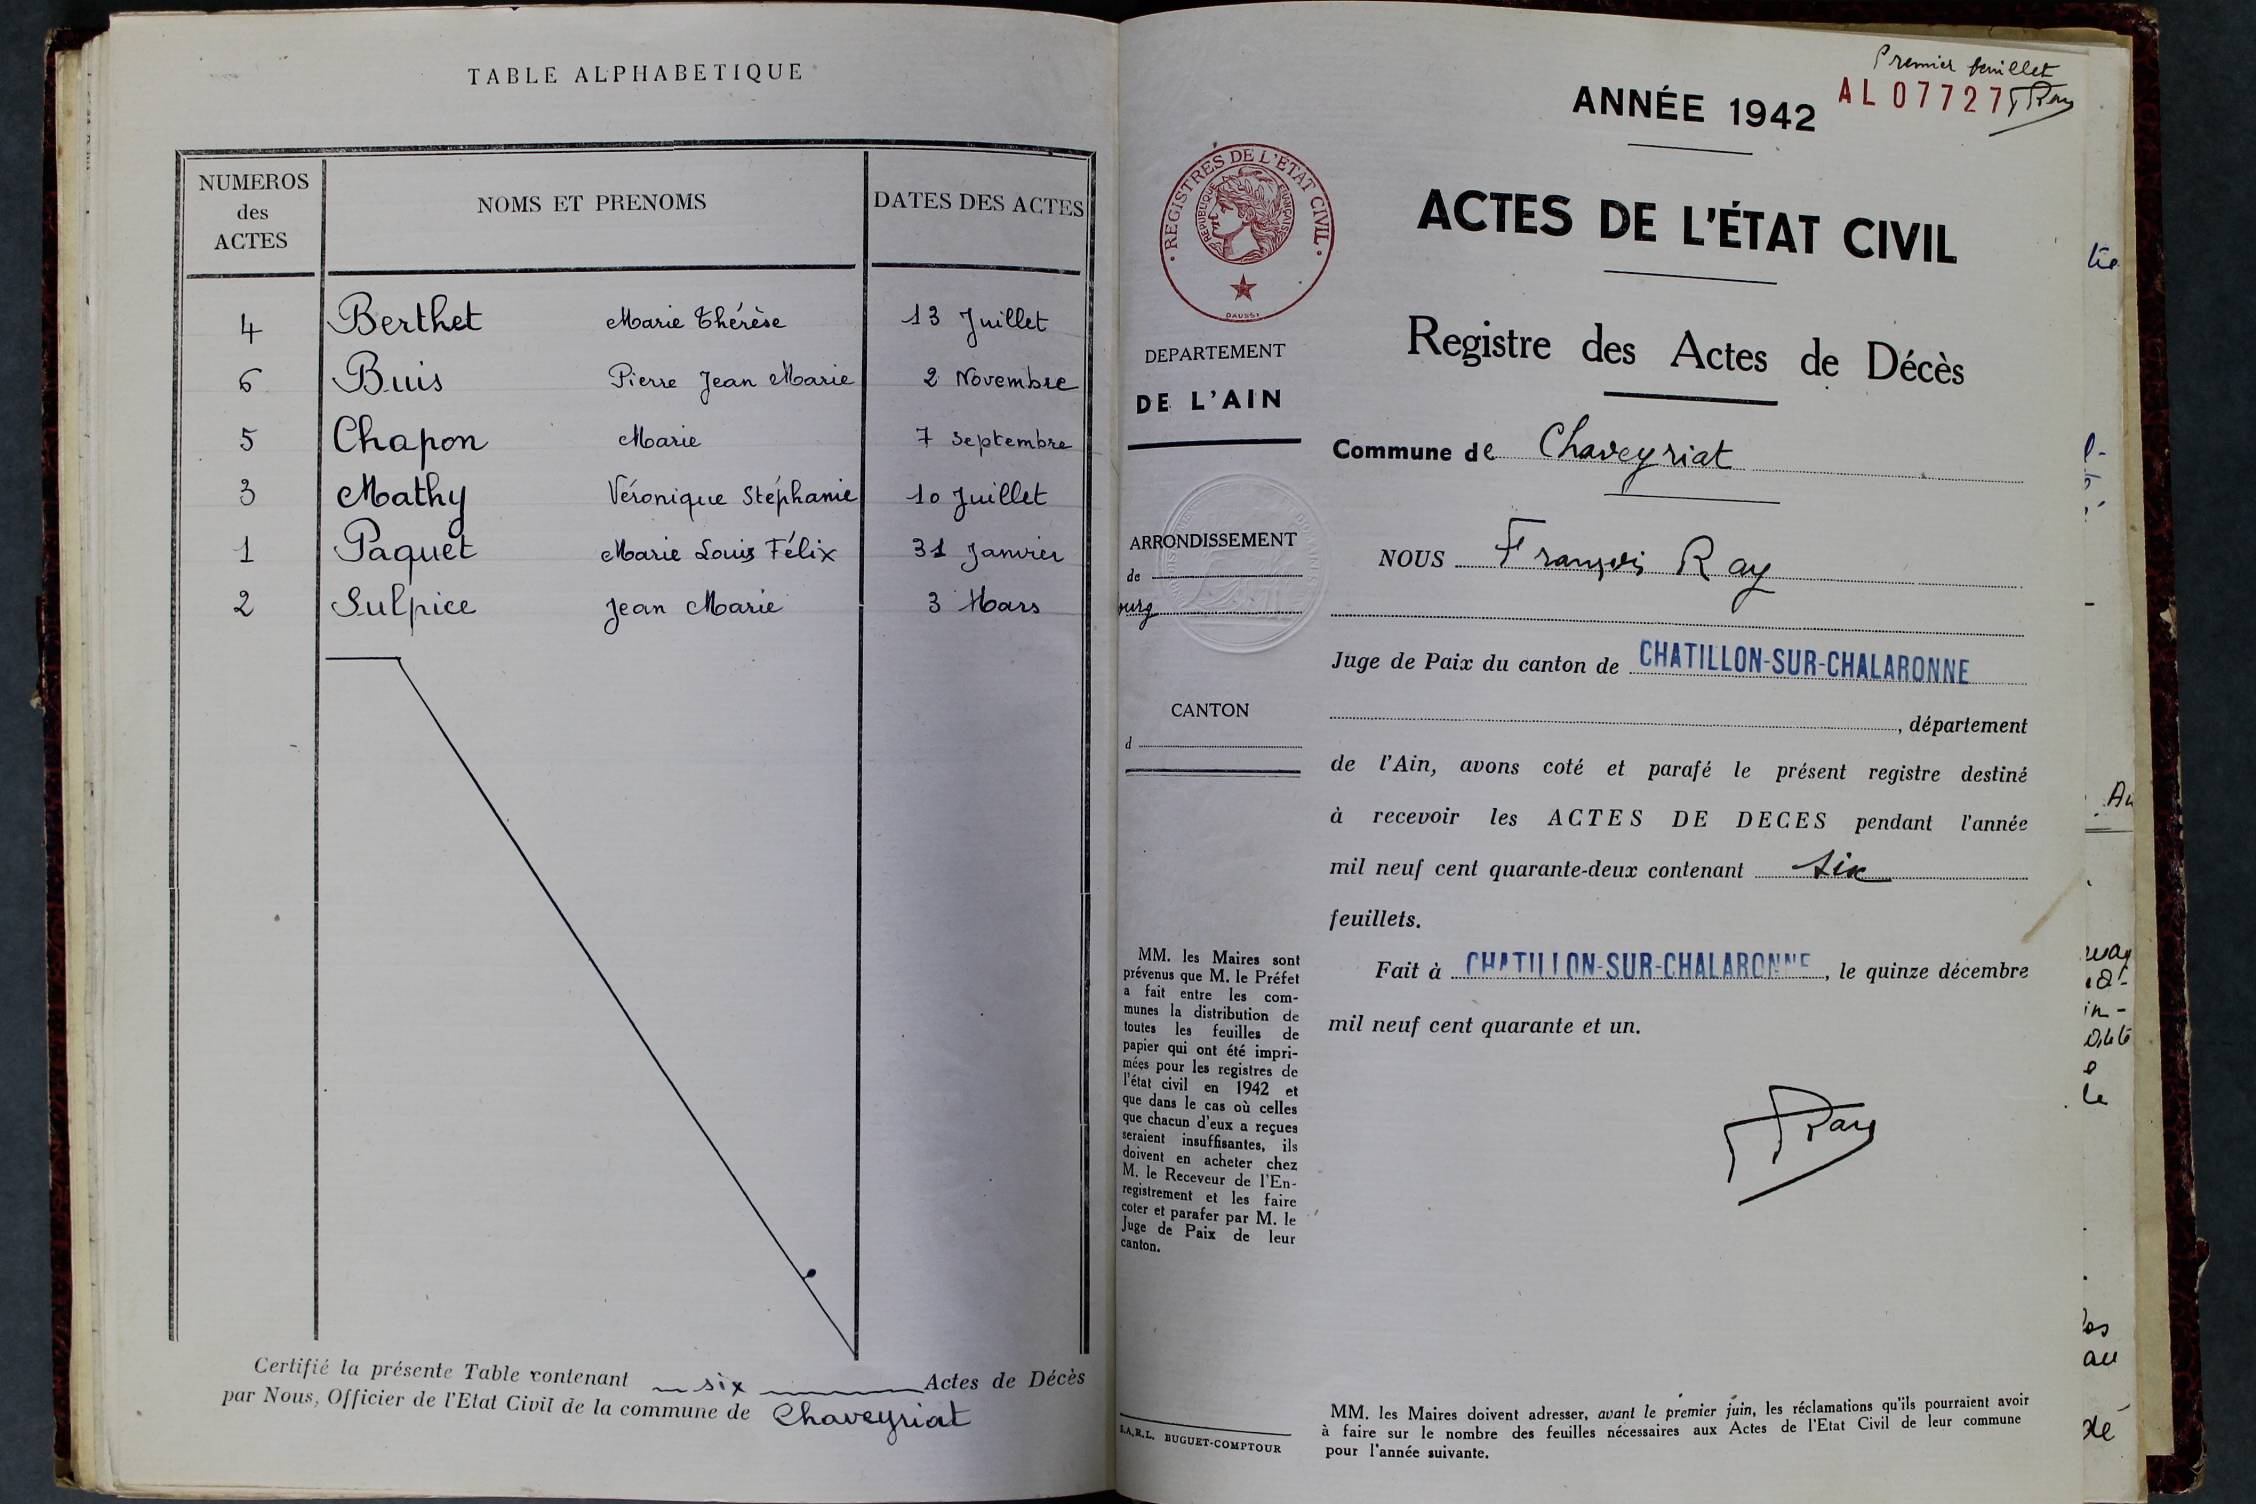 TABLE ALPHABETIQUE
NUMEROS
des
ACTES
NOMS ET PRENOMS
DATES DES ACTES
4 Berthet Marie Thérèse 13 Juillet
6 Buis Pierre Jean Marie 2 Novembre
5 Chapon Marie 7 Septembre
3 Mathy Véronique Stéphanie 10 Juillet
1 Paquet Marie Louis Félix 31 Janvier
2 Sulpice Jean Marie 3 Mars
Certifié la présente Table contenant six Actes de Décès
par Nous, Officier de l'Etat Civil de la commune de Chaveyriat
Premier feuillet
AL 07727 FRay
ANNÉE 1942
REGISTRES DE L'ÉTAT CIVIL
REPUBLIQUE FRANÇAISE
DAUSSY
ACTES DE L'ÉTAT CIVIL
Registre des Actes de Décès
DEPARTEMENT
DE L'AIN
Commune de Chaveyriat
ARRONDISSEMENT
de
ourg
CANTON
d
NOUS François Ray
Juge de Paix du canton de CHATILLON-SUR-CHALARONNE
, département
de l'Ain, avons coté et parafé le présent registre destiné
à recevoir les ACTES DE DECES pendant l'année
mil neuf cent quarante-deux contenant six
feuillets.
Fait à CHATILLON-SUR-CHALARONNE, le quinze décembre
mil neuf cent quarante et un.
FRay
MM. les Maires sont
prévenus que M. le Préfet
a fait entre les com-
munes la distribution de
toutes les feuilles de
papier qui ont été impri-
mées pour les registres de
l'état civil en 1942 et
que dans le cas où celles
que chacun d'eux a reçues
seraient insuffisantes, ils
doivent en acheter chez
M. le Receveur de l'En-
registrement et les faire
coter et parafer par M. le
Juge de Paix de leur
canton.
S.A.R.L. BUGUET-COMPTOUR
MM. les Maires doivent adresser, avant le premier juin, les réclamations qu'ils pourraient avoir
à faire sur le nombre des feuilles nécessaires aux Actes de l'Etat Civil de leur commune
pour l'année suivante.